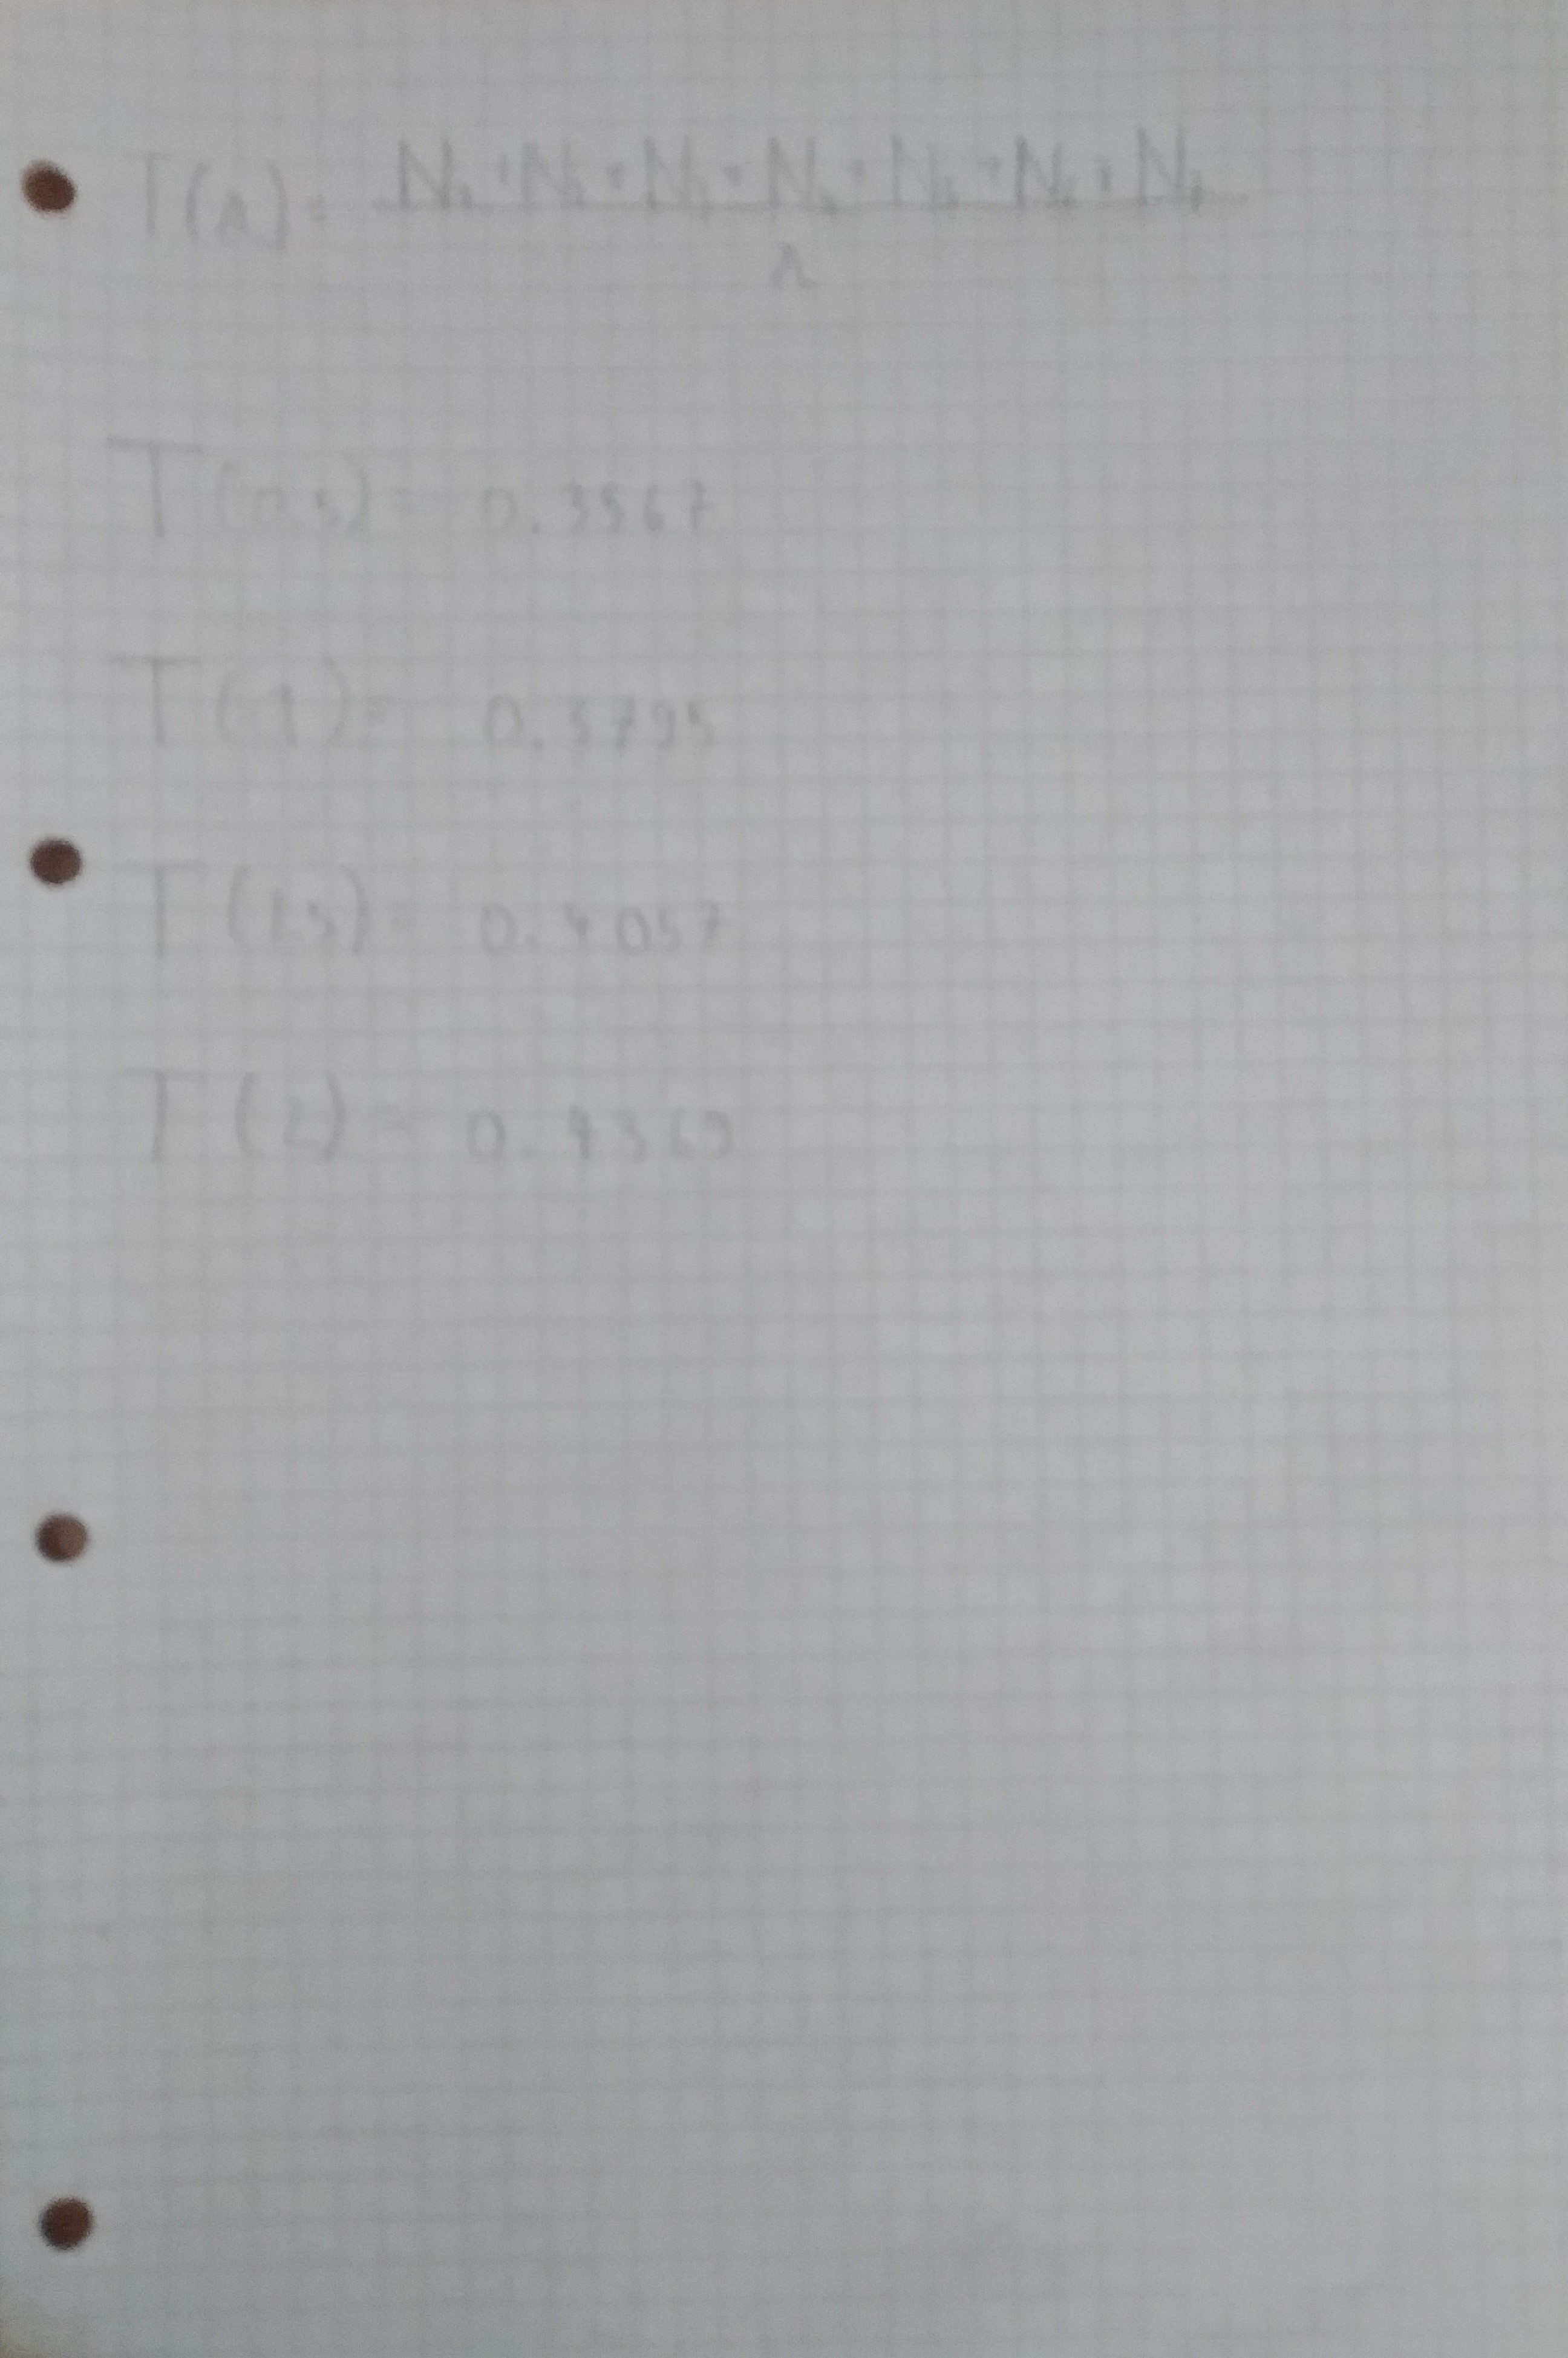 T(λ) = N₁ + N₂ + N₃ + N₄ + N₅ + N₆ + N₇
λ
T(0.5) = 0.3567
T(1) = 0.3795
T(1.5) = 0.4057
T(2) = 0.4369